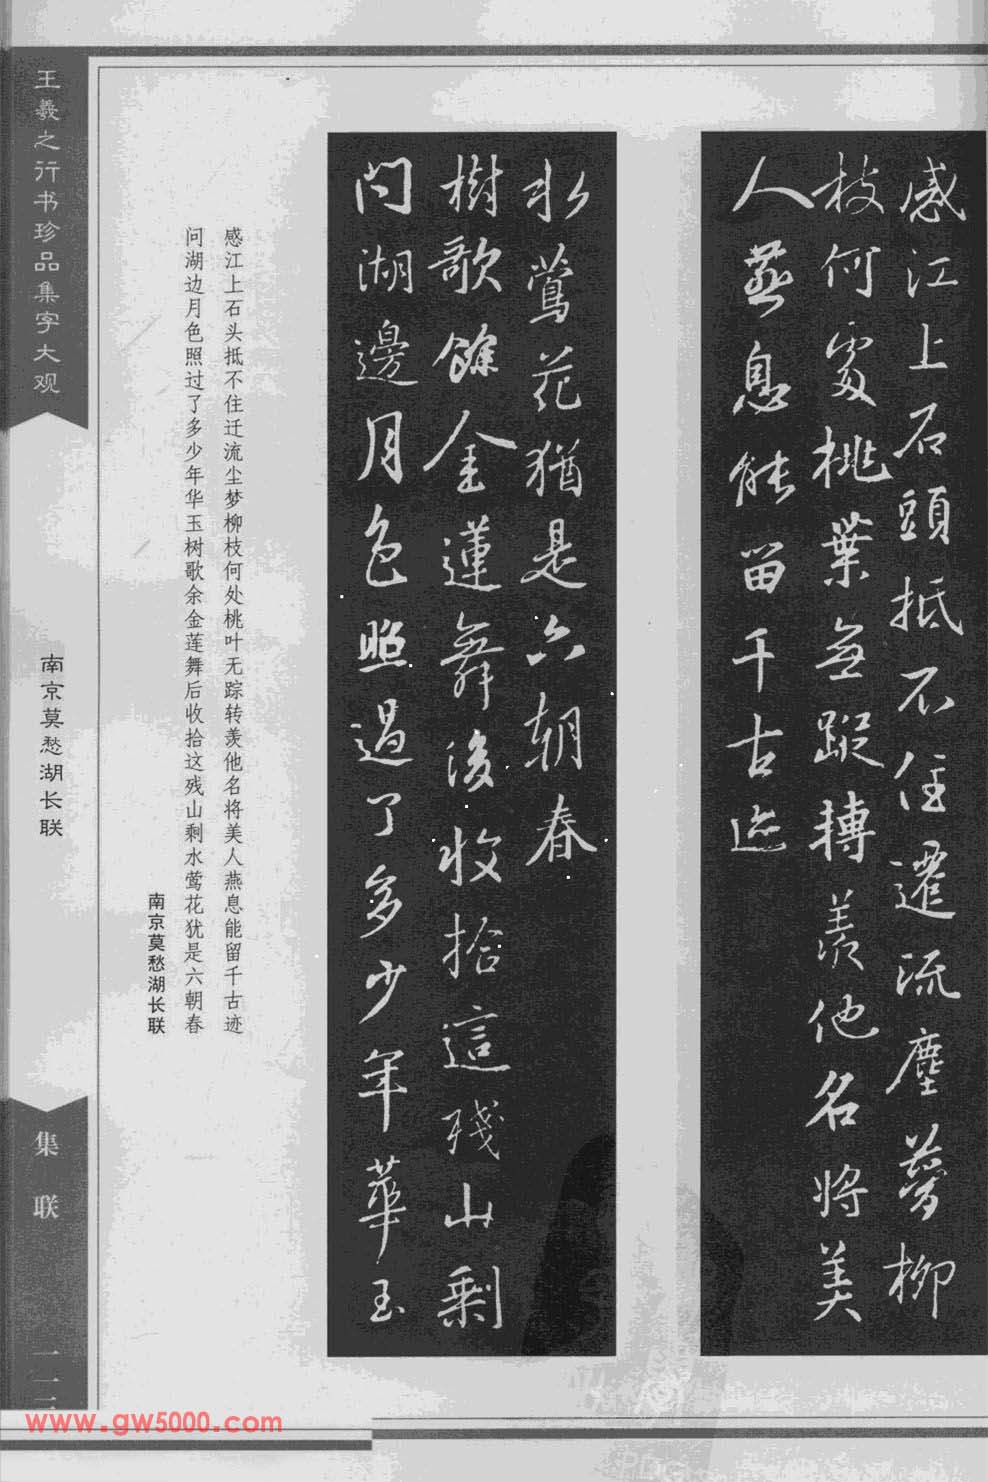 感江上石頭抵不住遷流塵夢柳
枝何處桃葉無蹤轉羨他名將美
人燕息能留千古迹
問湖邊月色照過了多少年華玉
樹歌餘金蓮舞後收拾這殘山剩
水鶯花猶是六朝春
感江上石头抵不住迁流尘梦柳枝何处桃叶无踪转羡他名将美人燕息能留千古迹
问湖边月色照过了多少年华玉树歌余金莲舞后收拾这残山剩水莺花犹是六朝春
南京莫愁湖长联
王羲之行书珍品集字大观
南京莫愁湖长联
集联
www.gw5000.com